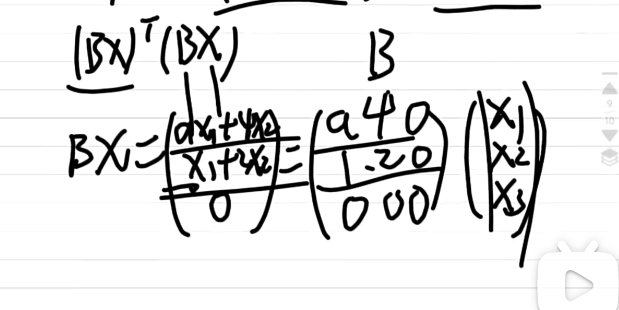 (BX)ᵀ(BX) B
BX = (ax₁+4x₂ x₁+2x₂ 0) = (a 4 0 1 -2 0 0 0 0) (x₁ x₂ x₃)
9
10